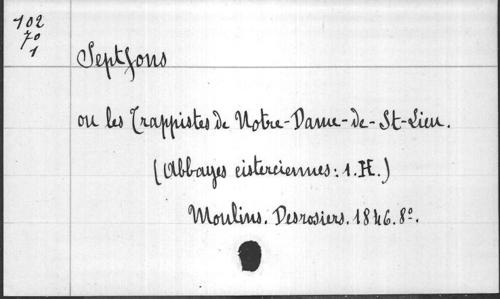 102
70
1
Septfons
ou les Trappistes de Notre-Dame-de-St-Lieu.
(Abbayes cisterciennes: 1. H.)
Moulins. Desrosiers. 1846. 8º.